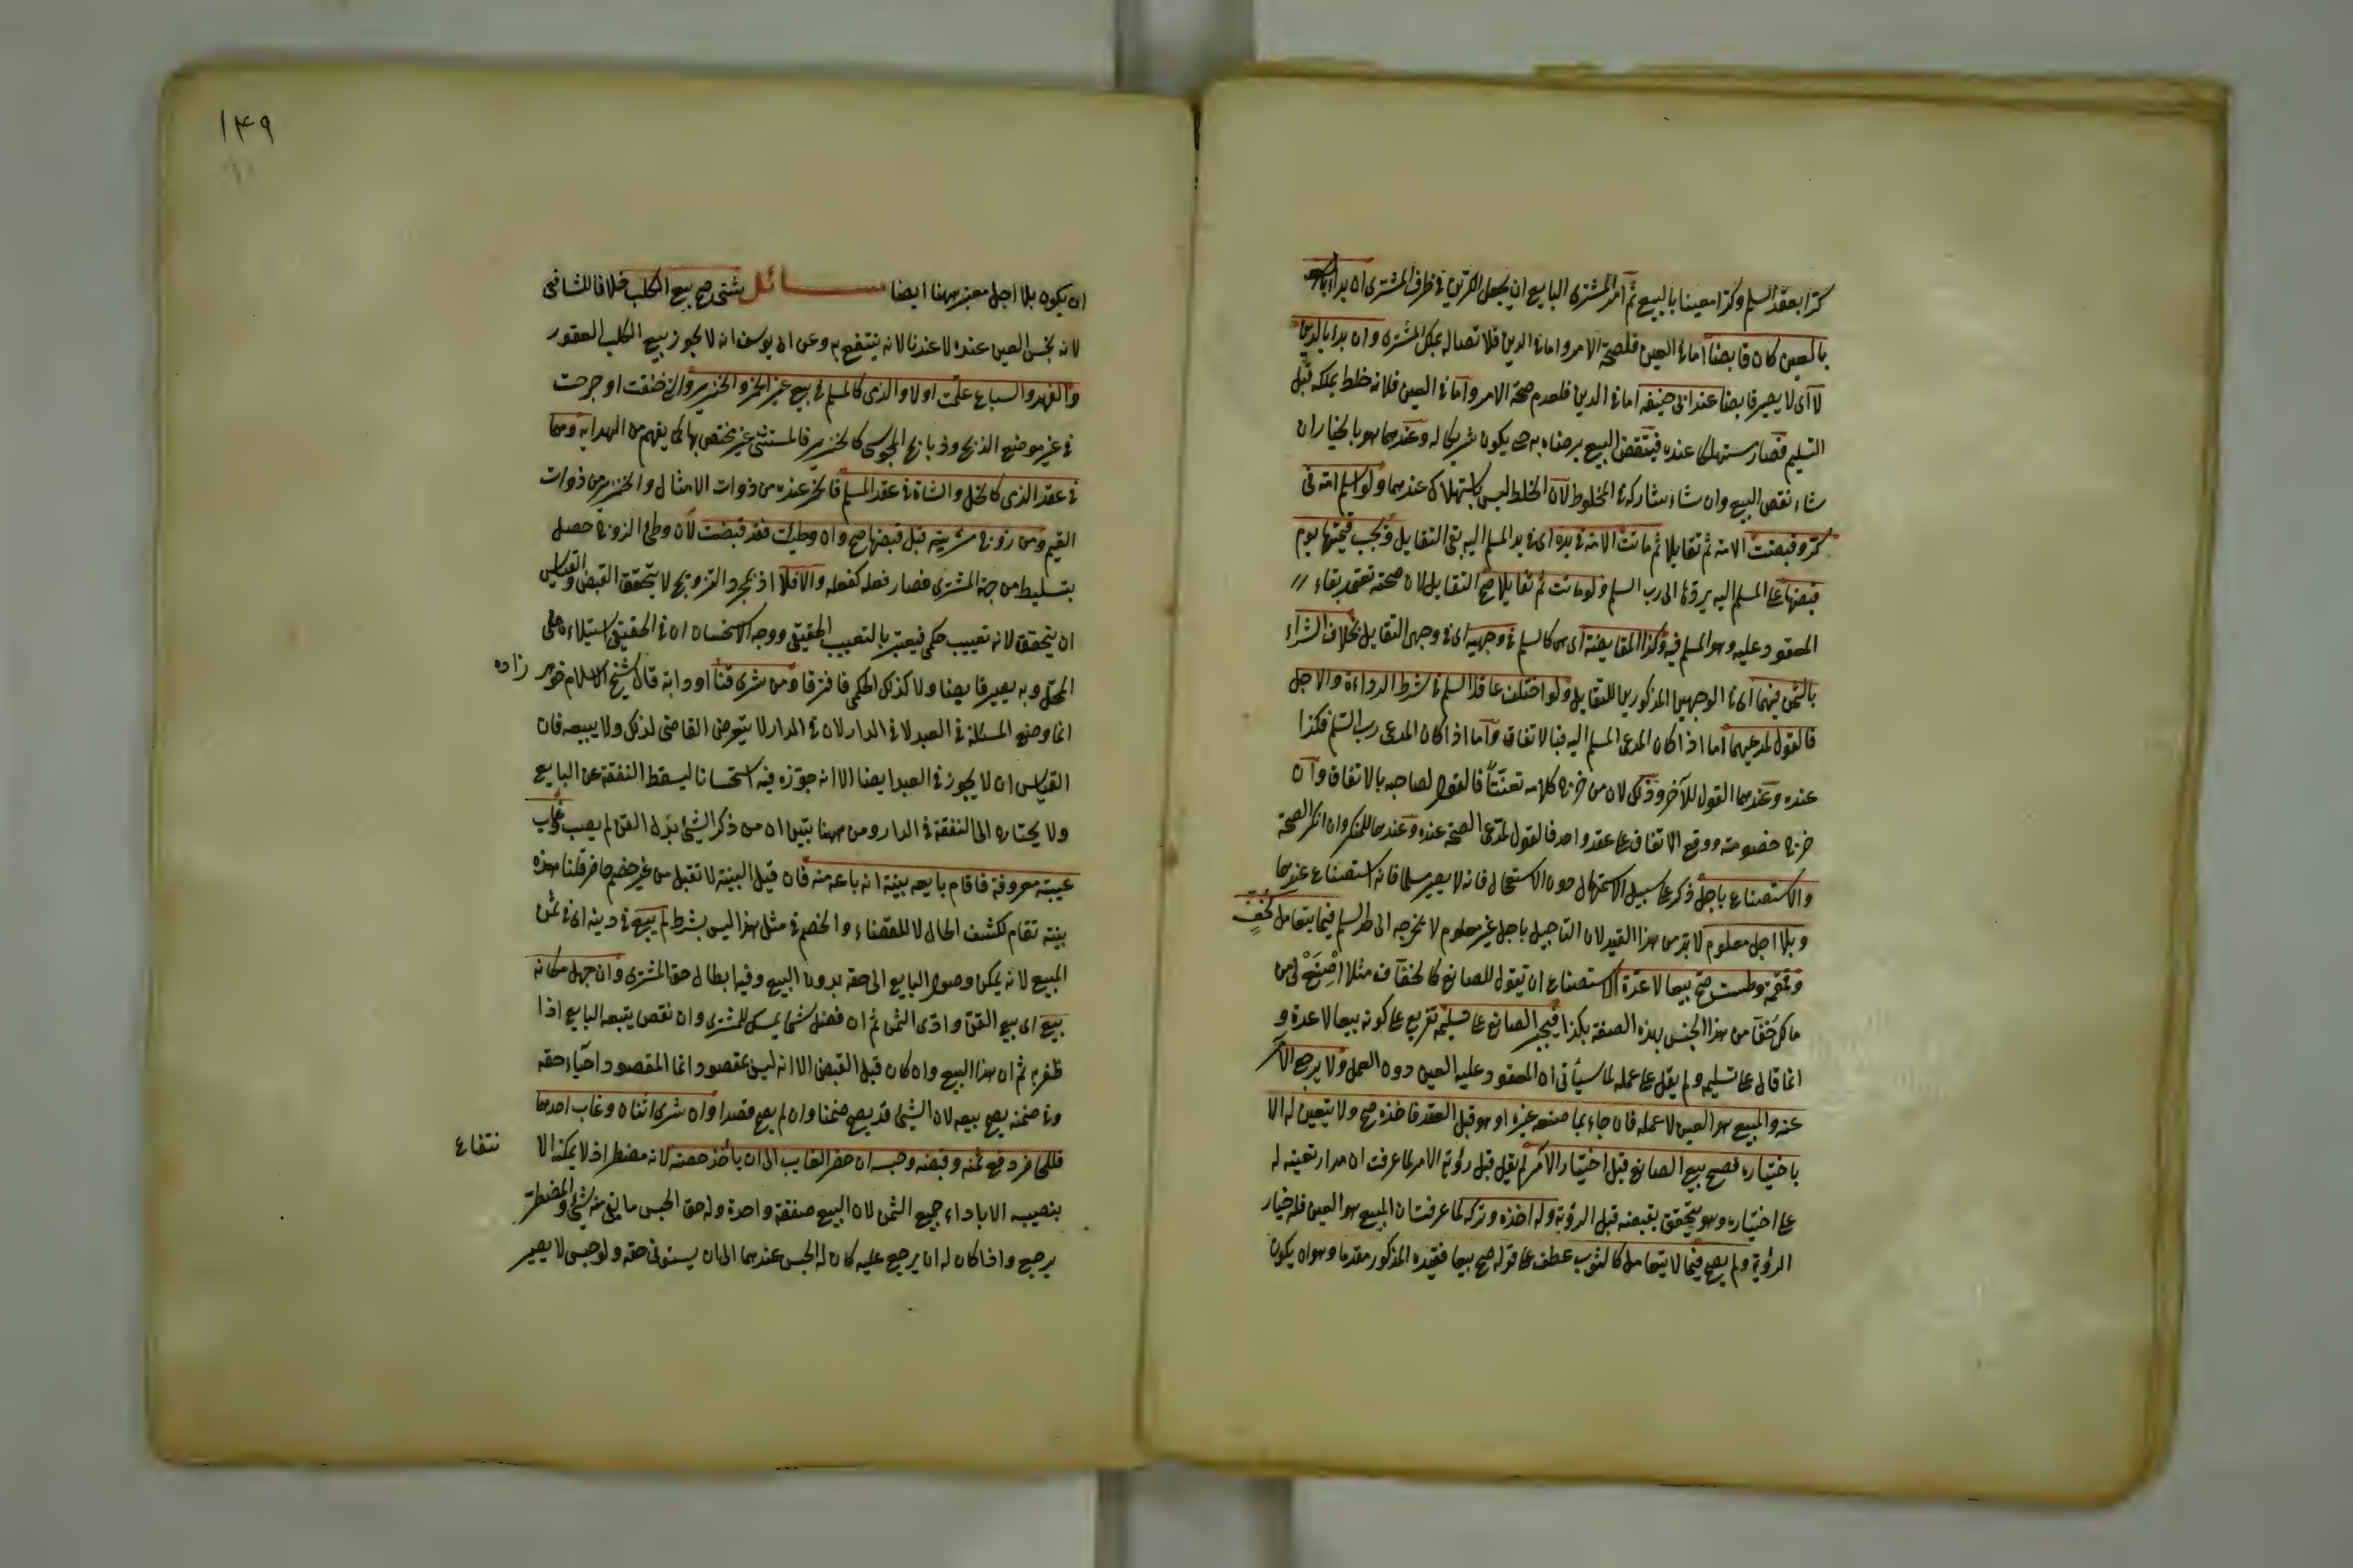 كرّا بعقد السلم وكرّا معينا بالبيع ثم امر المشترى البايع ان يجعل الكرّين في ظرف المشترى ان بدأ
بالعين كان قابضا اما في العين فلصحة الامر واما في الدين فلاتصاله بملك المشترى وان بدا بالدين
لا اى لا يصير قابضا عند ابى حنيفة اما في الدين فلعدم صحة الامر واما في العين فلانه خلط بملكه قبل
التسليم فصار مستهلكا عنده فينتقض البيع برضاه به حتى يكون شريكا له وعندهما هو بالخيار ان
شاء نقض البيع وان شاء شاركه في المخلوط لان الخلط ليس باستهلاك عندهما ولو اسلم امة في
كرّ وقبضت الامة ثم تقايلا ثم ماتت الامة في يده اى في يد المسلم اليه بقى التقايل وتجب قيمتها يوم
قبضها على المسلم اليه يردّها الى رب السلم ولو ماتت ثم تقايلا صح التقايل لان صحته تعتمد بقاء
المعقود عليه وهو المسلم فيه وكذا المقايضة اى هى كالسلم في وجهيه اى في وجهى التقايل بخلاف الشراء
بالثمن فيهما اى في الوجهين المذكورين للتقايل ولو اختلف عاقدا السلم في شرط الرداءة والاجل
فالقول لمدعيهما اما اذا كان المدعى المسلم اليه فبالاتفاق واما اذا كان المدعى رب السلم فكذا
عنده وعندهما القول للآخر وذلك لان من خرج كلامه تعنّتاً فالقول لصاحبه بالاتفاق وان
خرج خصومة ووقع الاتفاق على عقد واحد فالقول لمدعى الصحة عنده وعندهما للمنكر وان انكر الصحة
والاستصناع باجل ذكر على سبيل الاستمهال دون الاستعجال فانه لا يصير سلما فانه استصناع عندهما
وبلا اجل معلوم لا بد من هذا القيد لان التاجيل باجل غير معلوم لا يخرجه الى السلم فيما يتعامل كخفّ
وقمقمة وطست صح بيعا لا عدة الاستصناع ان تقول للصانع كالخفّاف مثلا اِصْنَعْ لى من
مالك خفّا من هذا الجنس بهذه الصفة بكذا فيجبر الصانع على تسليمه تفريع على كونه بيعا لا عدة و
انما قال على تسليمه ولم يقل على عمله لما سيأتى ان المعقود عليه العين دون العمل ولا يرجع الآمر
عنه والمبيع هو العين لا عمله فان جاء بما صنعه غيره او هو قبل العقد فاخذه صح ولا يتعين له الا
باختياره فصح بيع الصانع قبل اختيار الآمر لم يقل قبل رؤية الامر لما عرفت ان مدار تعينه له
على اختياره وهو يتحقق بقبضه قبل الرؤية وله اخذه وتركه لما عرفت ان المبيع هو العين فله خيار
الرؤية ولم يصح فيما لا يتعامل كالثوب عطف على قوله صح بيعا فقيده المذكور مقدما وهو ان يكون
١٤٩
ان يكون بلا اجل معتبر ههنا ايضا مسائل شتى صح بيع الكلب خلافا للشافعى
لانه نجس العين عنده لا عندنا لانه ينتفع به وعن ابى يوسف انه لا يجوز بيع الكلب العقور
والفهد والسباع علمت اولا والذمى كالمسلم في بيع غير الخمر والخنزير والتى خنقت او جرحت
في غير موضع الذبح وذبايح المجوسى كالخنزير فالمستثنى غير مختص بها كما يفهم من الهداية وهما
في عقد الذمى كالخل والشاة في عقد المسلم فالخمر عنده من ذوات الامثال والخنزير من ذوات
القيم ومن زوج مشريته قبل قبضها صح وان وطئت فقد قبضت لان وطئ الزوج حصل
بتسليط من جهة المشترى فصار فعله كفعله والا فلا اذ بمجرد التزويج لا يتحقق القبض والقياس
ان يتحقق لانه تعييب حكمى فيعتبر بالتعييب الحقيقى ووجه الاستحسان ان في الحقيقى استيلاء على
المحل وبه يصير قابضا ولا كذلك الحكمى فافترقا ومن شرى قنّا او دابة قال شيخ الاسلام خواهر زاده
انما وضع المسئلة في العبد لا في الدار لان في الدار لا يتعرض القاضى لذلك ولا يبيعه فان
القياس ان لا يجوز في العبد ايضا الا انه جوّزه فيه استحسانا ليسقط النفقة عن البايع
ولا يحتاج الى النفقة في الدار ومن ههنا يتبين ان من ذكر الشئ بدل القن لم يصب وغاب
غيبة معروفة فاقام بايعه بينة انه باعه منه فان قيل البينة لا تقبل من غير خصم حاضر قلنا هذه
بينة تقام لكشف الحال لا للقضاء والخصم في مثل هذا ليس بشرط لم يبع في دينه اى في ثمن
المبيع لانه يمكن وصول البايع الى حقه بدون البيع وفيه ابطال حق المشترى وان جهل مكانه
بيع اى بيع القن وادّى الثمن ثم ان فضل شئ يمسك للمشترى وان نقص يتبعه البايع اذا
ظفر به ثم ان هذا البيع وان كان قبل القبض الا انه ليس بمقصود انما المقصود احياء حقه
وفي ضمنه يصح بيعه لان الشئ قد يصح ضمنا وان لم يصح قصدا وان شرى اثنان وغاب احدهما
فللحاضر دفع ثمنه وقبضه وحبسه ان حضر الغايب الى ان يأخذ حصته لانه مضطر اذ لا يمكنه الا نتفاع
بنصيبه الا باداء جميع الثمن لان البيع صفقة واحدة وله حق الحبس ما بقى منه شئ والمضطر
يرجع واذا كان له ان يرجع عليه كان له الحبس عندهما الى ان يستوفى حقه ولو حبس لا يصير